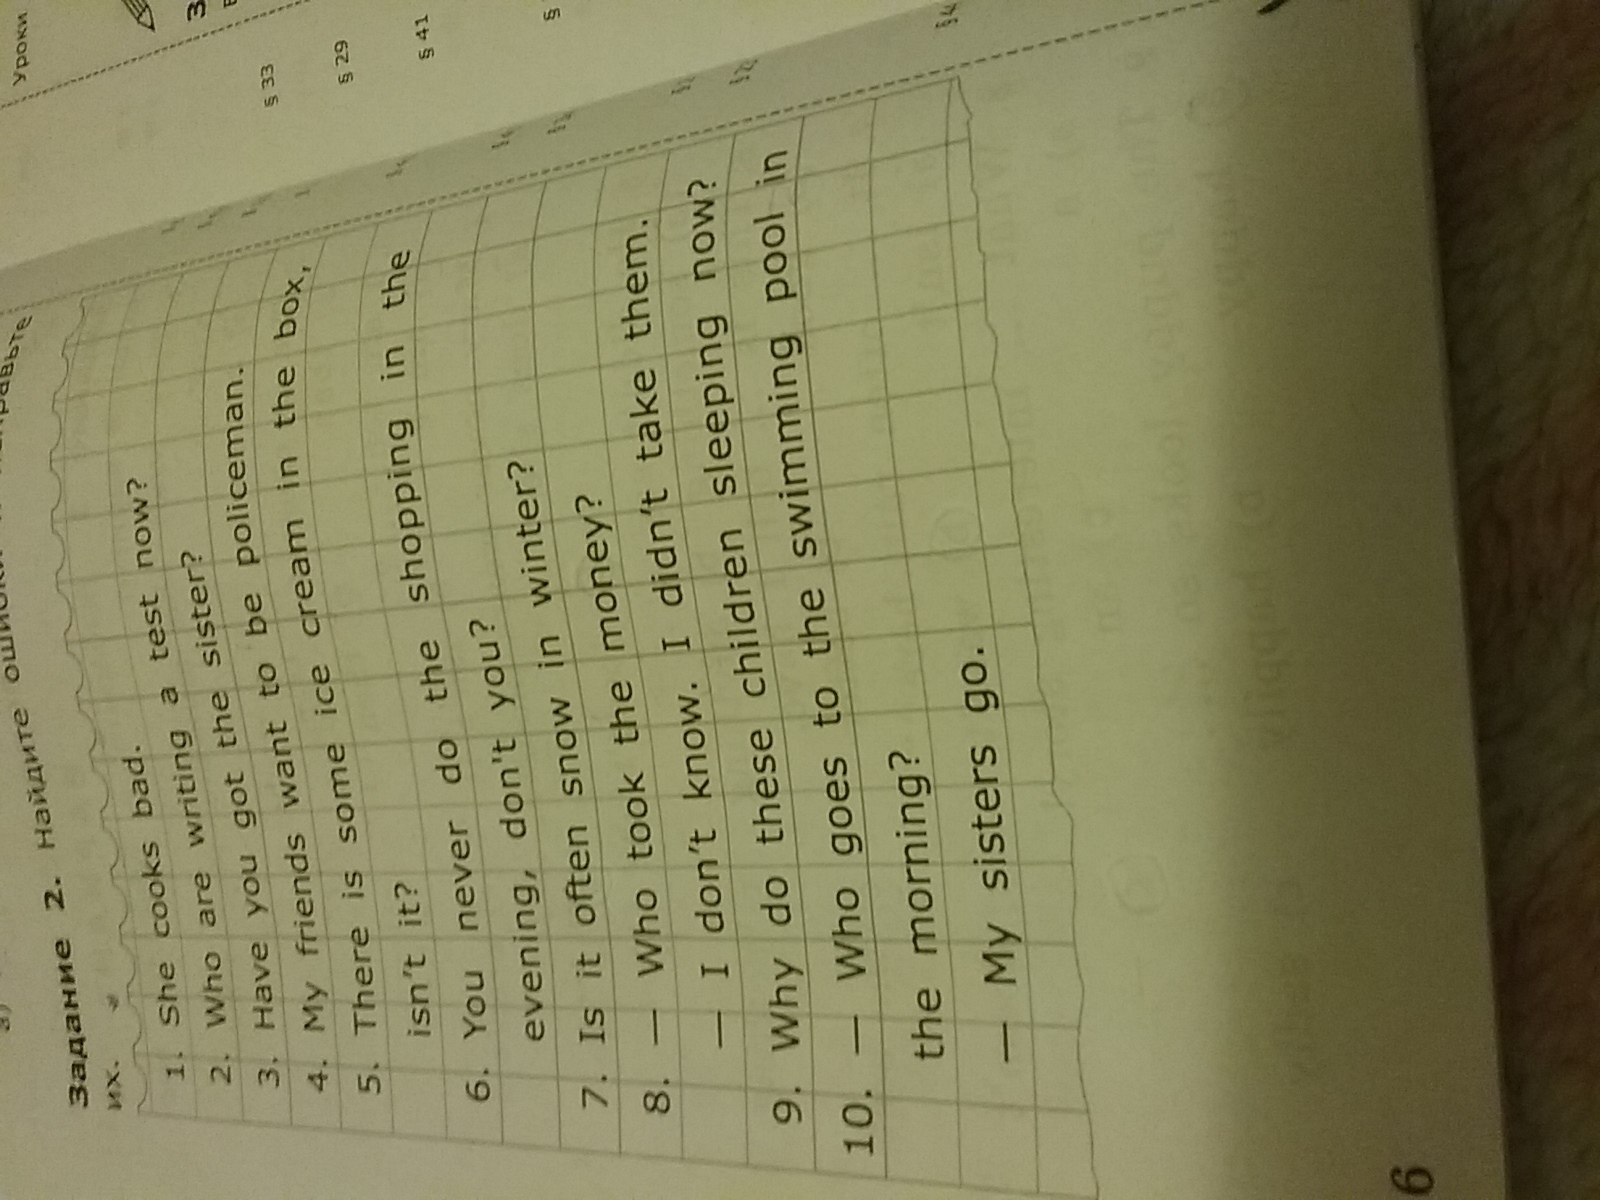 Уроки
§ 33
§ 29
§ 41
§
Задание 2. Найдите
их.
1. She cooks bad.
2. Who are writing a test now?
3. Have you got the sister?
4. My friends want to be policeman.
5. There is some ice cream in the box,
isn't it?
6. You never do the shopping in the
evening, don't you?
7. Is it often snow in winter?
8. — Who took the money?
— I don't know. I didn't take them.
9. Why do these children sleeping now?
10. — Who goes to the swimming pool in
the morning?
— My sisters go.
6